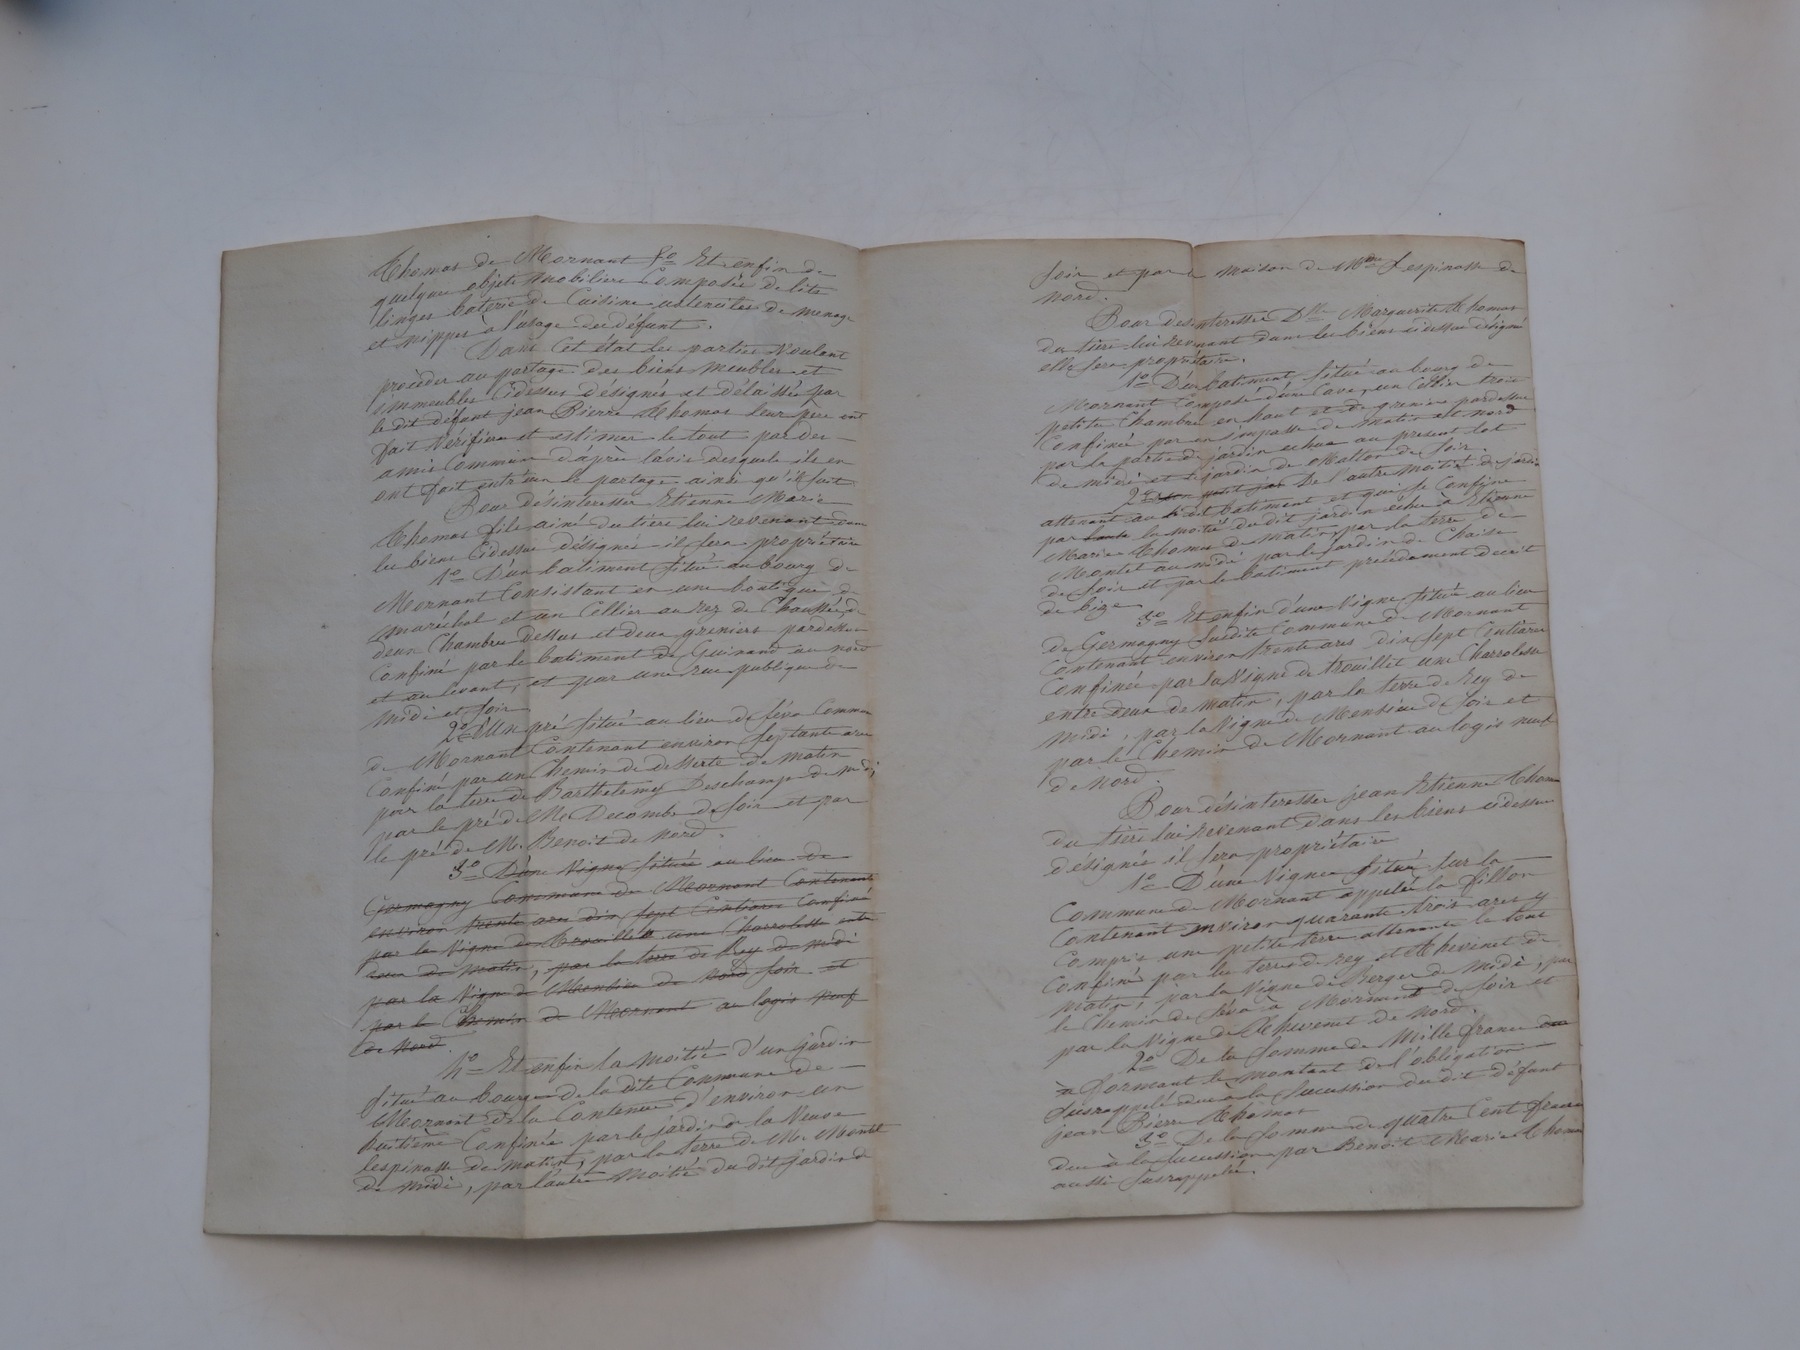 Thomas de Mornant 8º Et enfin de
quelque objets mobiliers Composée de lits
linges baterie de Cuisine ustensiles de menage
et nippes à l'usage du défunt.
Dans Cet état les parties Voulant
procèder au partage des biens meubles et
immeubles Cidessus désignés et délaissés par
le dit défunt jean Pierre Thomas leur père ont
fait Vérifier et estimer le tout par des
amis Commun d'après l'avis desquels ils en
ont fait entr'eux le partage ainsi qu'il suit
Pour désinteresser Etienne Marie
Thomas fils ainé du tiers lui revenant dans
les biens Cidessus désignés il sera propriétaire
1º D'un batiment situé au bourg de
Mornant Consistant en une boutique de
maréchal et un Cellier au rez de Chaussée
deux Chambres dessus et deux greniers pardessus
Confiné par le batiment de Guinand au nord
et au levant, et par une rue publique de
midi et soir
2º D'Un pré situé au lieu de féva Commune
de Mornant Contenant environ septante ares
Confiné par un Chemin de desserte de matin
par la terre de Barthelemy Deschamps de midi
par le pré de Mr Decombe de soir et par
le pré de M. Benoit de nord.
3º D'une Vigne située au lieu de
Germagny Commune de Mornant Contenant
environ trente ares dix sept Centiares Confiné
par la Vigne de Trouillet une Charrolette entre
deux de matin, par la terre de Rey de midi
par la Vigne de Mensieu de nord soir et
par le Chemin de Mornant au logis neuf
de nord.
4º Et enfin la moitié d'un jardin
situé au bourg de la dite Commune de
Mornant de la Contenue d'environ un
huitième Confinée par le jardin de la Veuve
lespinasse de matin, par la terre de M. Montel
de midi, par l'autre Moitié du dit jardin de
soir et par la maison de Mme Lespinasse de
nord.
Pour desinteresser Dlle Marguerite Thomas
du tiers lui revenant dans les biens cidessus désignés
elle sera propriétaire.
1º D'un batiment situé au bourg de
Mornant Composé d'une Cave, un Cellier trois
petite Chambres en haut et de greniers pardessus
Confiné par un impasse de matin et nord
par la partie de jardin echue au present lot
de midi et le jardin de Matton de soir.
2º De l'autre moitié de jardin
attenant au dit batiment et qui se Confine
par la moitié du dit jardin échu à Etienne
Marie Thomas de matin, par la terre de
Montel au midi par le jardin de Chaise
de soir et par le batiment précédament decrit
de bize
3º Et enfin d'une Vigne située au lieu
de Germagny Susdite Commune de Mornant
Contenant environ trente ares dix sept Centiares
Confinée par la Vigne de trouillet une Charrolette
entre deux de matin, par la terre de rey de
midi, par la Vigne de Mensieu de soir et
par le Chemin de Mornant au logis neuf
de nord.
Pour désinteresser jean Etienne Thomas
du tiers lui revenant dans les biens cidessus
désignés il sera propriétaire
1º D'une Vigne située sur la
Commune de Mornant appelée la fillon
Contenant environ quarante trois ares y
Compris une petite terre attenante le tout
Confiné par les terres de rey et Thevenet de
matin, par la Vigne de Berger de midi, par
le Chemin de féva à Mornant de soir et
par la Vigne de Thevenet de nord.
2º De la Somme de Mille francs
formant le montant de l'obligation
susrappelé due à la succession du dit défunt
jean Pierre Thomas
3º De la Somme de quatre Cent francs
due à la succession par Benoit Marie Thomas
aussi susrappelé.